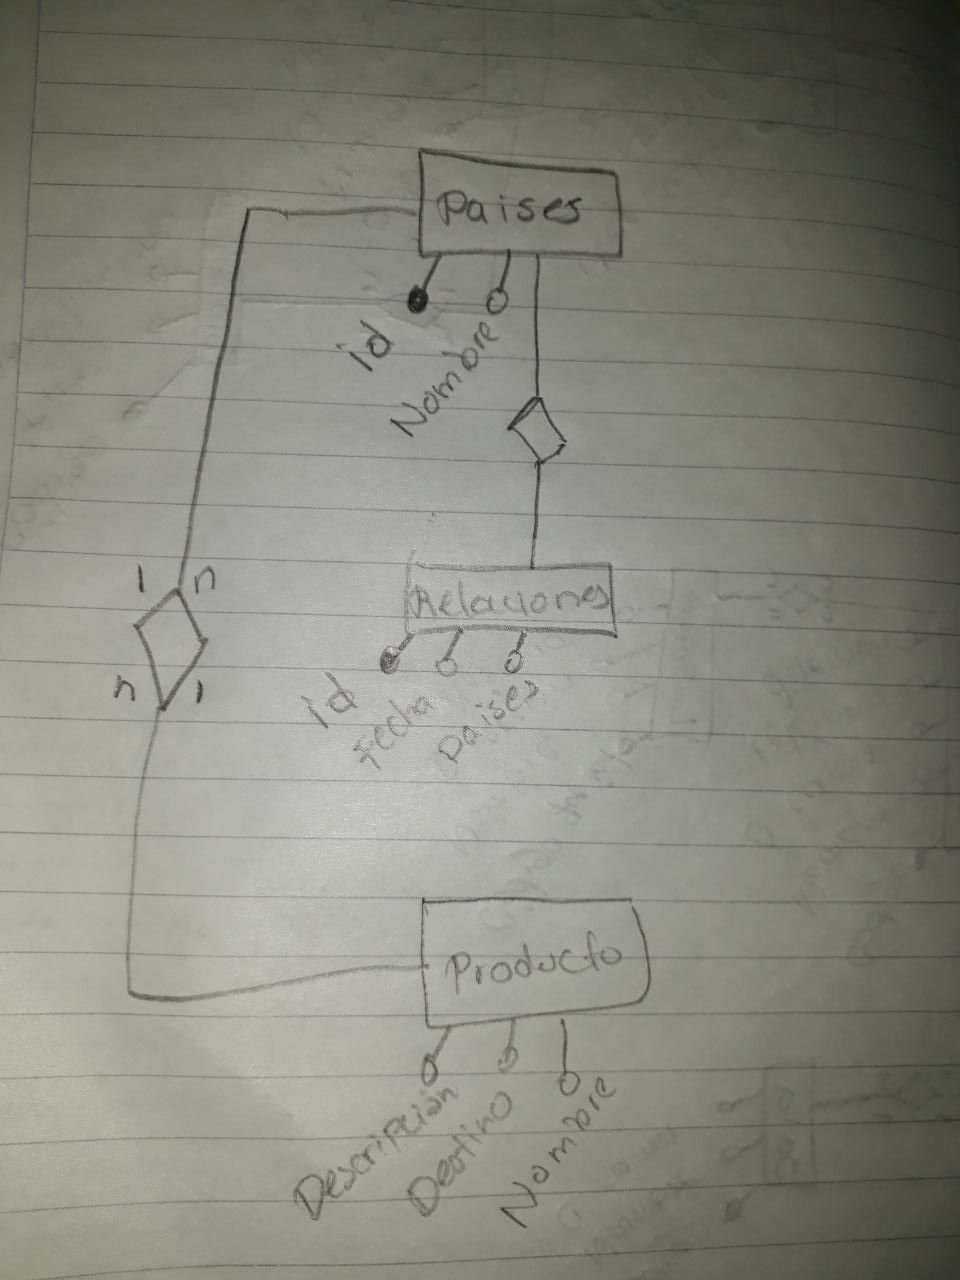 Paises
id
Nombre
1 n
n 1
Relaciones
id
Fecha
Paises
Producto
Descripción
Destino
Nombre